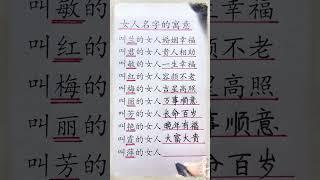 女人名字的寓意
叫兰的女人婚姻幸福
叫君的女人贵人相助
叫敏的女人一生幸福
叫红的女人容颜不老
叫梅的女人吉星高照
叫丽的女人万事顺意
叫芳的女人长命百岁
叫艳的女人晚年有福
叫霞的女人大富大贵
叫萍的女人